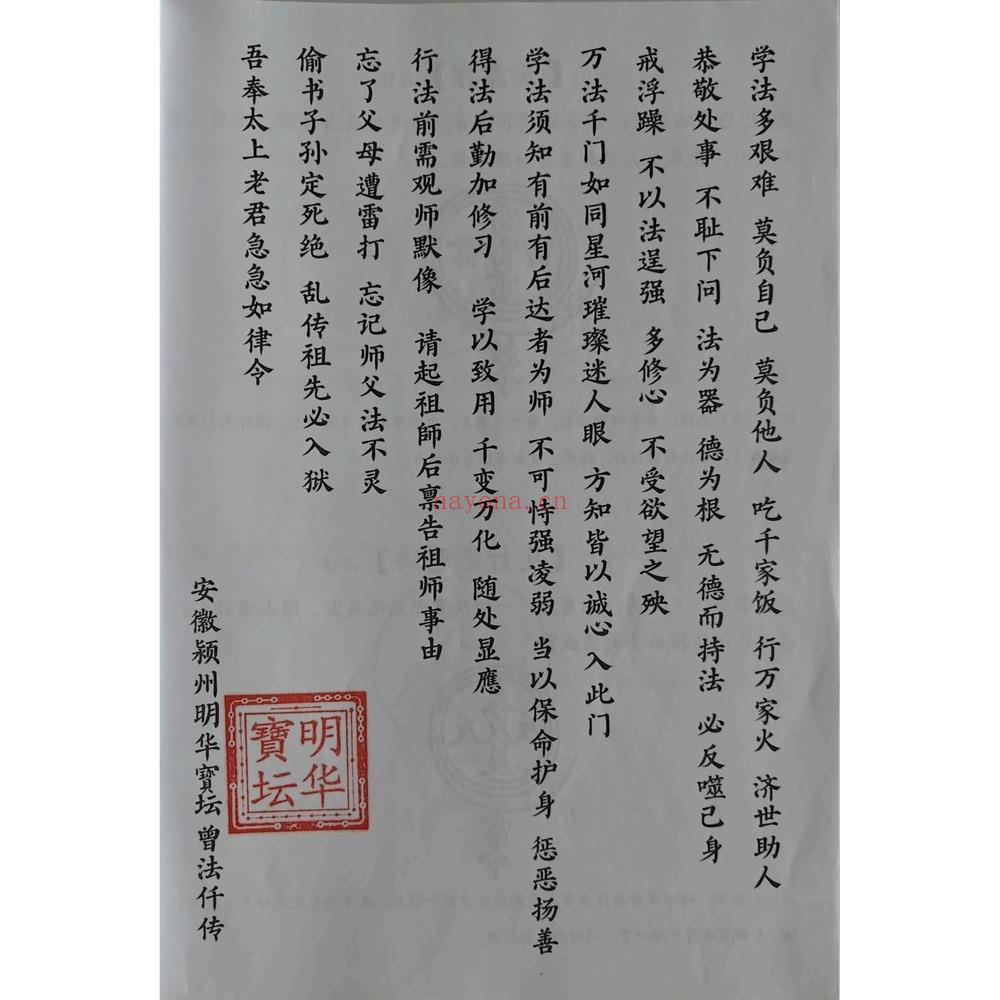 学法多艰难 莫负自己 莫负他人 吃千家饭 行万家火 济世助人
恭敬处事 不耻下问 法为器 德为根 无德而持法 必反噬己身
戒浮躁 不以法逞强 多修心 不受欲望之殃
万法千门如同星河璀璨迷人眼 方知皆以诚心入此门
学法须知有前有后达者为师 不可恃强凌弱 当以保命护身 惩恶扬善
得法后勤加修习 学以致用 千变万化 随处显應
行法前需观师默像 请起祖師后禀告祖师事由
忘了父母遭雷打 忘记师父法不灵
偷书子孙定死绝 乱传祖先必入狱
吾奉太上老君急急如律令
安徽颍州明华寳坛曾法仟传
明华
寶坛
nayona.cn